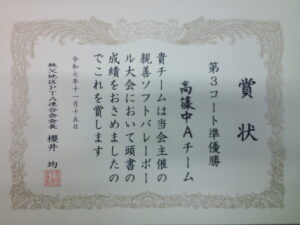 賞状
第3コート準優勝
高篠中Aチーム
貴チームは当会主催の
親善ソフトバレーボー
ル大会において頭書の
成績をおさめましたの
でこれを賞します
令和七年十一月十五日
秩父地区PTA連合会会長 櫻井 均